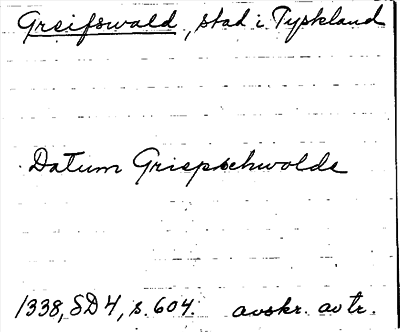 Greifswald, stad i Tyskland
Datum Gripschwolde
1338, SD 4, s. 604. avskr. av tr.